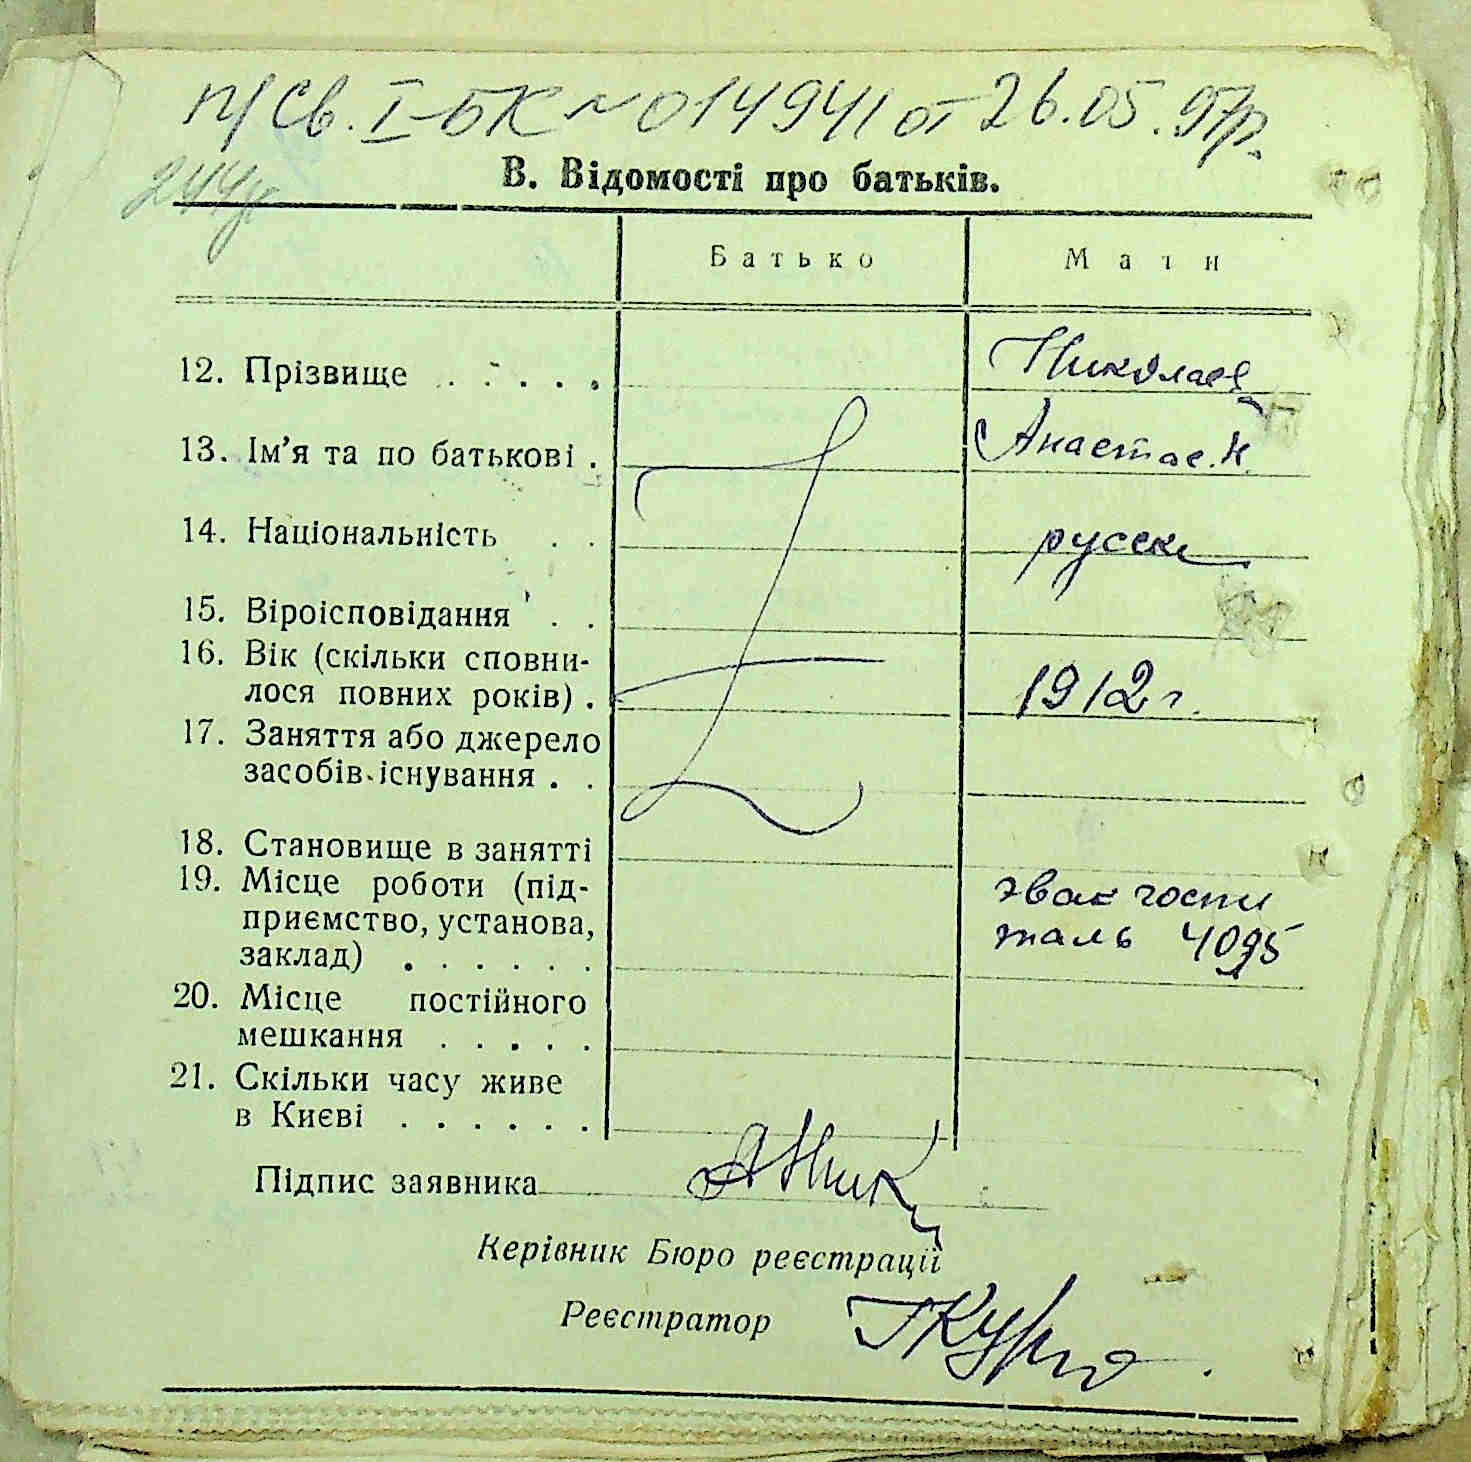 п/св. I-БК № 014941 от 26.05.97р.
В. Відомості про батьків.
Батько Мати
12. Прізвище . . . . . Николаев
13. Ім'я та по батькові . Анастас. Н.
14. Національність . . русск
15. Віроісповідання . .
16. Вік (скільки сповни-
лося повних років) . 1912 г.
17. Заняття або джерело
засобів існування . .
18. Становище в занятті
19. Місце роботи (під- эвак госпи
приємство, установа, таль 4095
заклад) . . . . . .
20. Місце постійного
мешкання . . . . .
21. Скільки часу живе
в Києві . . . . . .
Підпис заявника АНик
Керівник Бюро реєстрації
Реєстратор